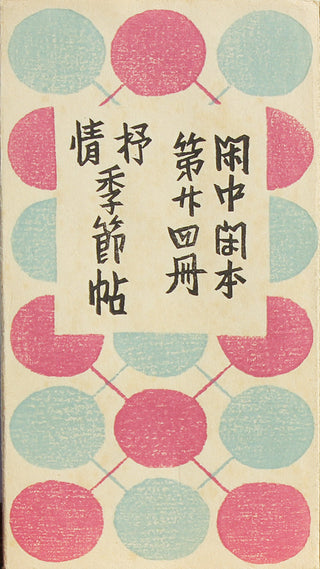 閑中閑本
第廿四冊
抒情
季節帖